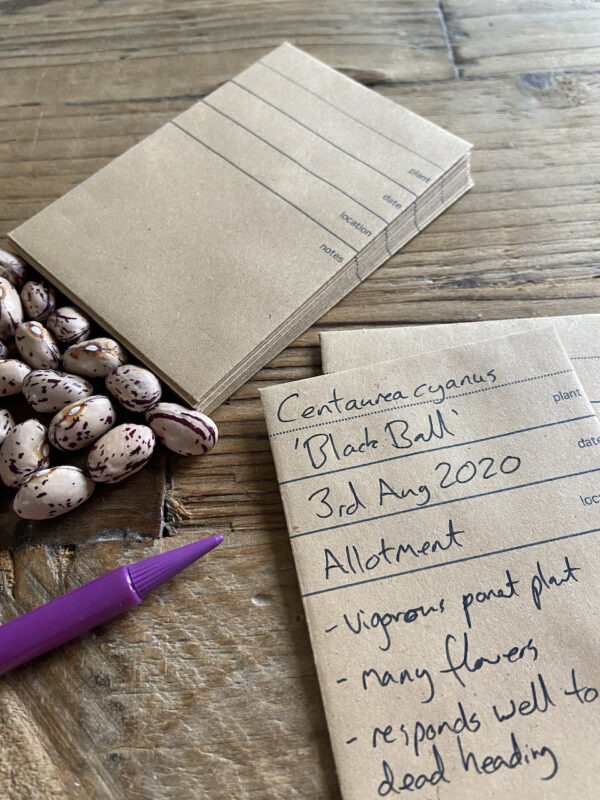 plant
date
location
notes
Centaurea cyanus
plant
'Black Ball'
date
3rd Aug 2020
loc
Allotment
- vigorous parent plant
- many flowers
- responds well to
dead heading